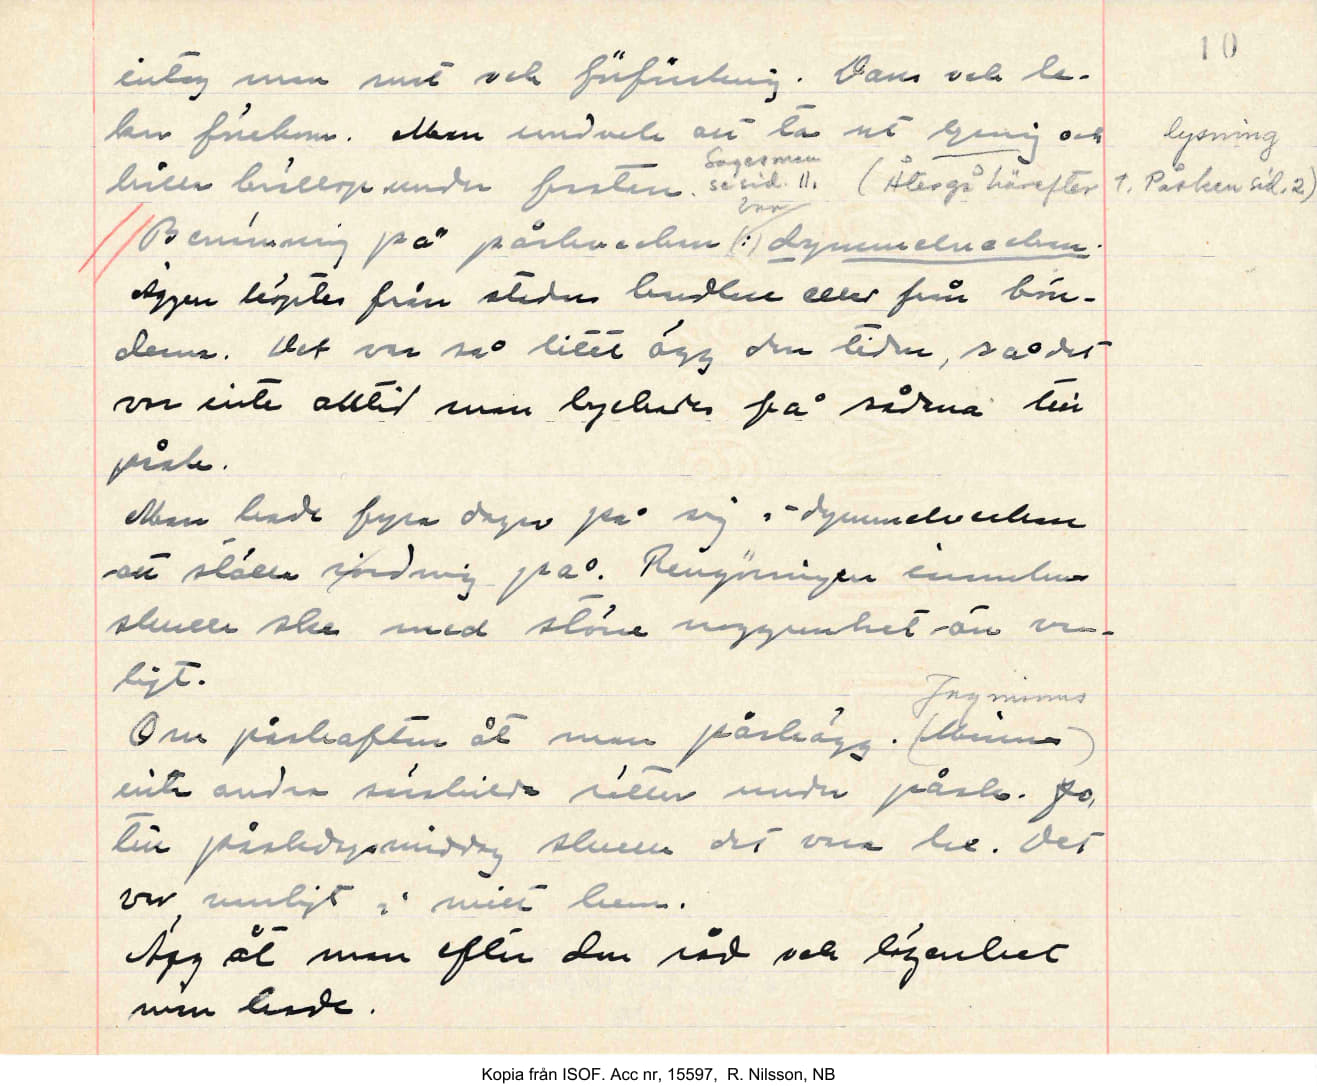 10
intog man mat och förfriskning. Dans och le-
kar förekom. Man undvek att ta ut lysning och
lysning
hålla bröllop under fastan. (Återgå härefter t. Påsken sid. 2)
Sagesman
se sid. 11.
var
Benämning på påskveckan (:) dymmelveckan.
Äggen köptes från stadens handlare eller från bön-
derna. Det var så litet ägg den tiden, så det
var inte alltid man lyckades få sådana till
påsk.
Man hade fyra dagar på sig i dymmelveckan
att ställa i ordning på. Rengöringen inomhus
skulle ske med större noggrannhet än van-
ligt.
Jag minns
Om påskafton åt man påskägg. (Minns)
inte andra särskilda rätter under påsk. Jo,
till påskdagsmiddag skulle det vara
Det
var vanligt i mitt hem.
Ägg åt man efter den råd och lägenhet
man hade.
Kopia från ISOF. Acc nr, 15597, R. Nilsson, NB